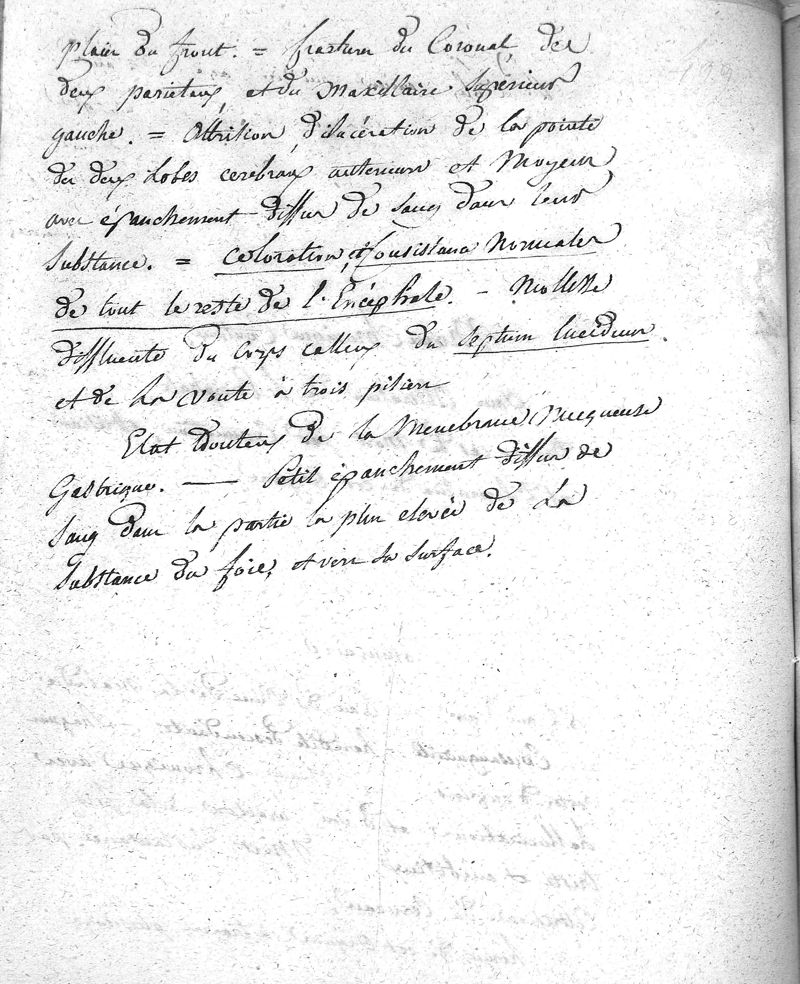 plaie du front. = fracture du Coronal, des
deux pariétaux, et du Maxillaire Supérieur
gauche. = Attrition, dilacération de la pointe
des deux Lobes cerebraux antérieurs et Moyens
avec épanchement diffus de Sang dans leur
Substance. = coloration, et Consistance Normales
de tout le reste de l'Encéphale. - Mollesse
diffluente du Corps calleux du Septum Lucidum.
et de La voute à trois piliers
Etat douteux de la Membrane Muqueuse
Gastrique. — Petit épanchement diffus de
Sang dans la partie la plus elevée de La
Substance du foie, et vers sa surface.